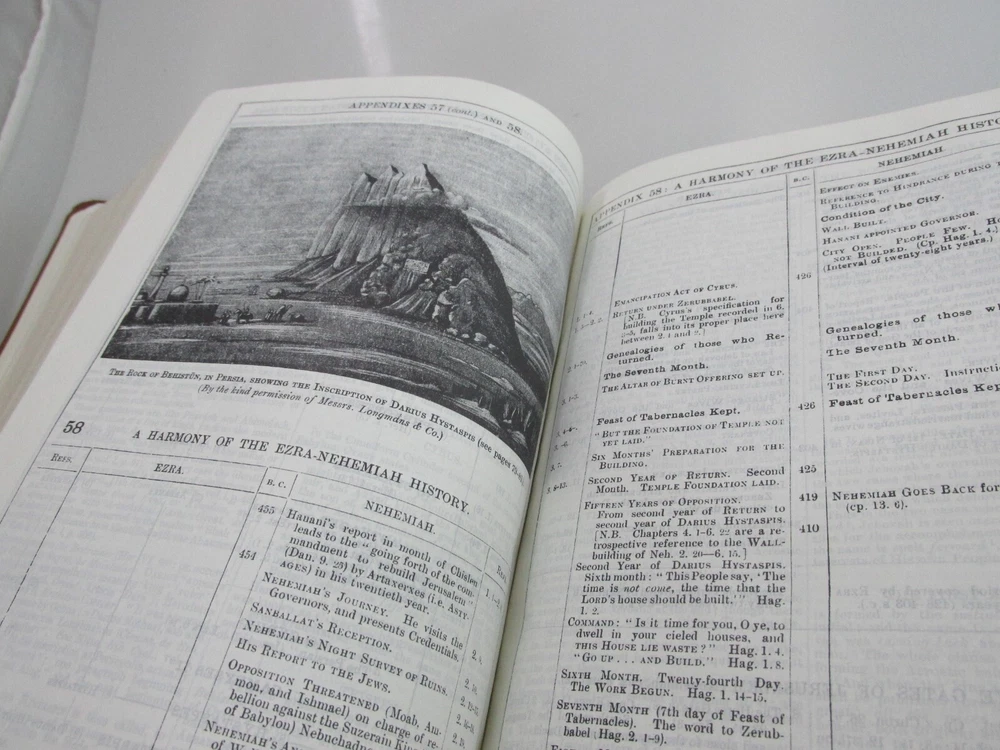 APPENDIXES 57 (cont.) AND 58.
THE ROCK OF BEHISTŪN, IN PERSIA, SHOWING THE INSCRIPTION OF DARIUS HYSTASPIS (see pages
(By the kind permission of Messrs. Longmans & Co.)
58
A HARMONY OF THE EZRA-NEHEMIAH HISTORY.
REFS.
EZRA.
B. C.
NEHEMIAH.
REFS.
455
Hanani's report in month of Chisleu
leads to the "going forth of the com-
mandment to rebuild Jerusalem"
(Dan. 9. 25) by Artaxerxes (i.e. ASTY-
AGES) in his twentieth year.
454
NEHEMIAH'S JOURNEY. He visits the
Governors, and presents Credentials.
SANBALLAT'S RECEPTION.
NEHEMIAH'S NIGHT SURVEY OF RUINS.
HIS REPORT TO THE JEWS.
OPPOSITION THREATENED (Moab, Am-
mon, and Ishmael) on charge of re-
bellion against the Suzerain King
of Babylon) Nebuchadne
APPENDIX 58: A HARMONY OF THE EZRA-NEHEMIAH HISTO
REFS.
EZRA.
B.C.
NEHEMIAH.
EMANCIPATION ACT OF CYRUS.
RETURN UNDER ZERUBBABEL.
N.B. Cyrus's specification for
building the Temple recorded in 6.
3-5, falls into its proper place here
between 2. 1 and 2.
Genealogies of those who Re-
turned.
The Seventh Month.
THE ALTAR OF BURNT OFFERING SET UP.
Feast of Tabernacles Kept.
"BUT THE FOUNDATION OF TEMPLE NOT
YET LAID."
SIX MONTHS' PREPARATION FOR THE
BUILDING.
SECOND YEAR OF RETURN. Second
Month. TEMPLE FOUNDATION LAID.
FIFTEEN YEARS OF OPPOSITION.
From second year of RETURN to
second year of DARIUS HYSTASPIS.
[N.B. Chapters 4. 1-6. 22 are a re-
trospective reference to the WALL-
building of Neh. 2. 20—6. 15.]
Second Year of DARIUS HYSTASPIS.
Sixth month: "This People say, 'The
time is not come, the time that the
LORD'S house should be built.'" Hag.
1. 2.
COMMAND: "Is it time for you, O ye, to
dwell in your cieled houses, and
THIS HOUSE LIE WASTE?" Hag. 1. 4.
"GO UP . . . AND BUILD." Hag. 1. 8.
SIXTH MONTH. Twenty-fourth Day.
The WORK BEGUN. Hag. 1. 14-15.
SEVENTH MONTH (7th day of Feast of
Tabernacles). The word to Zerub-
babel (Hag. 2. 1-9).
EFFECT ON ENEMIES.
REFERENCE TO HINDRANCE DURING
BUILDING.
Condition of the City.
WALL BUILT.
HANANI APPOINTED GOVERNOR.
CITY OPEN. PEOPLE FEW.
NOT BUILDED. (Cp. Hag. 1. 4.)
(Interval of twenty-eight years.)
426
Genealogies of those w
turned.
The Seventh Month.
THE FIRST DAY.
THE SECOND DAY. Instructi
426
Feast of Tabernacles Kep
425
419
NEHEMIAH GOES BACK for
(cp. 13. 6).
410